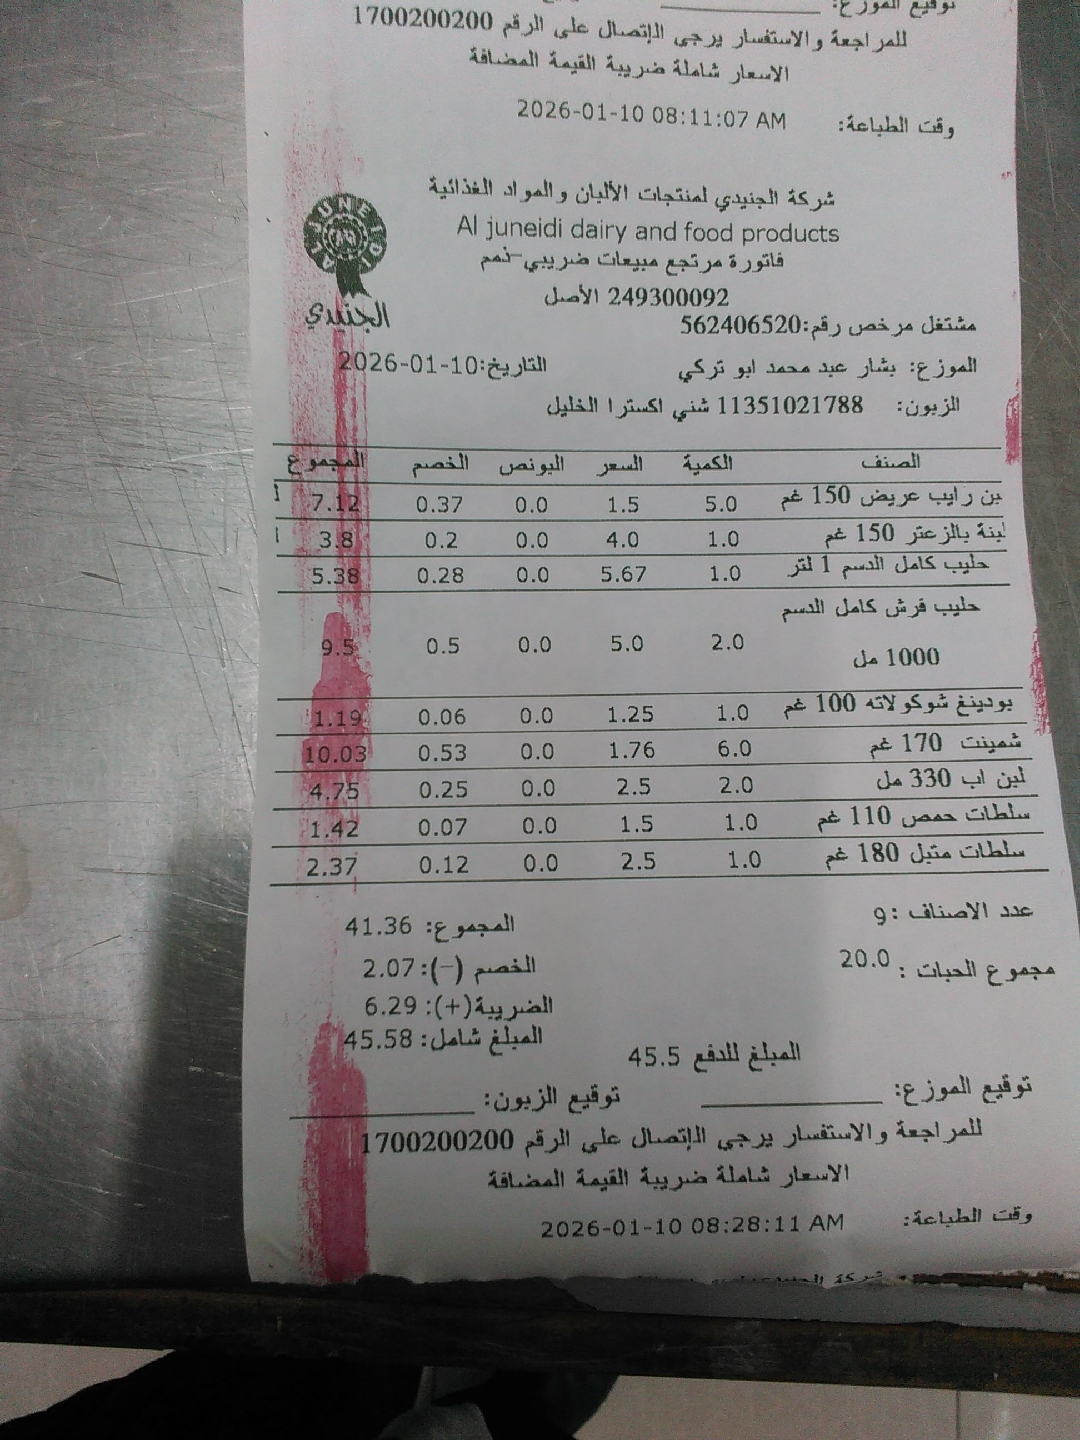 توقيع الموزع:
للمراجعة والاستفسار يرجى الإتصال على الرقم 1700200200
الاسعار شاملة ضريبة القيمة المضافة
وقت الطباعة: 2026-01-10 08:11:07 AM
شركة الجنيدي لمنتجات الألبان والمواد الغذائية
Al juneidi dairy and food products
فاتورة مرتجع مبيعات ضريبي-ذمم
249300092 الأصل
AL JUNEIDI
الجنيدي
مشتغل مرخص رقم:562406520
الموزع: بشار عبد محمد ابو تركي التاريخ:2026-01-10
الزبون: 11351021788 شني اكسترا الخليل
الصنف الكمية السعر البونص الخصم المجموع
بن رايب عريض 150 غم 5.0 1.5 0.0 0.37 7.12
لبنة بالزعتر 150 غم 1.0 4.0 0.0 0.2 3.8
حليب كامل الدسم 1 لتر 1.0 5.67 0.0 0.28 5.38
حليب فرش كامل الدسم
1000 مل 2.0 5.0 0.0 0.5 9.5
بودينغ شوكولاته 100 غم 1.0 1.25 0.0 0.06 1.19
شمينت 170 غم 6.0 1.76 0.0 0.53 10.03
لبن اب 330 مل 2.0 2.5 0.0 0.25 4.75
سلطات حمص 110 غم 1.0 1.5 0.0 0.07 1.42
سلطات متبل 180 غم 1.0 2.5 0.0 0.12 2.37
عدد الاصناف :9 المجموع: 41.36
مجموع الحبات : 20.0 الخصم (-): 2.07
الضريبة(+): 6.29
المبلغ شامل: 45.58
المبلغ للدفع 45.5
توقيع الموزع: توقيع الزبون:
للمراجعة والاستفسار يرجى الإتصال على الرقم 1700200200
الاسعار شاملة ضريبة القيمة المضافة
وقت الطباعة: 2026-01-10 08:28:11 AM